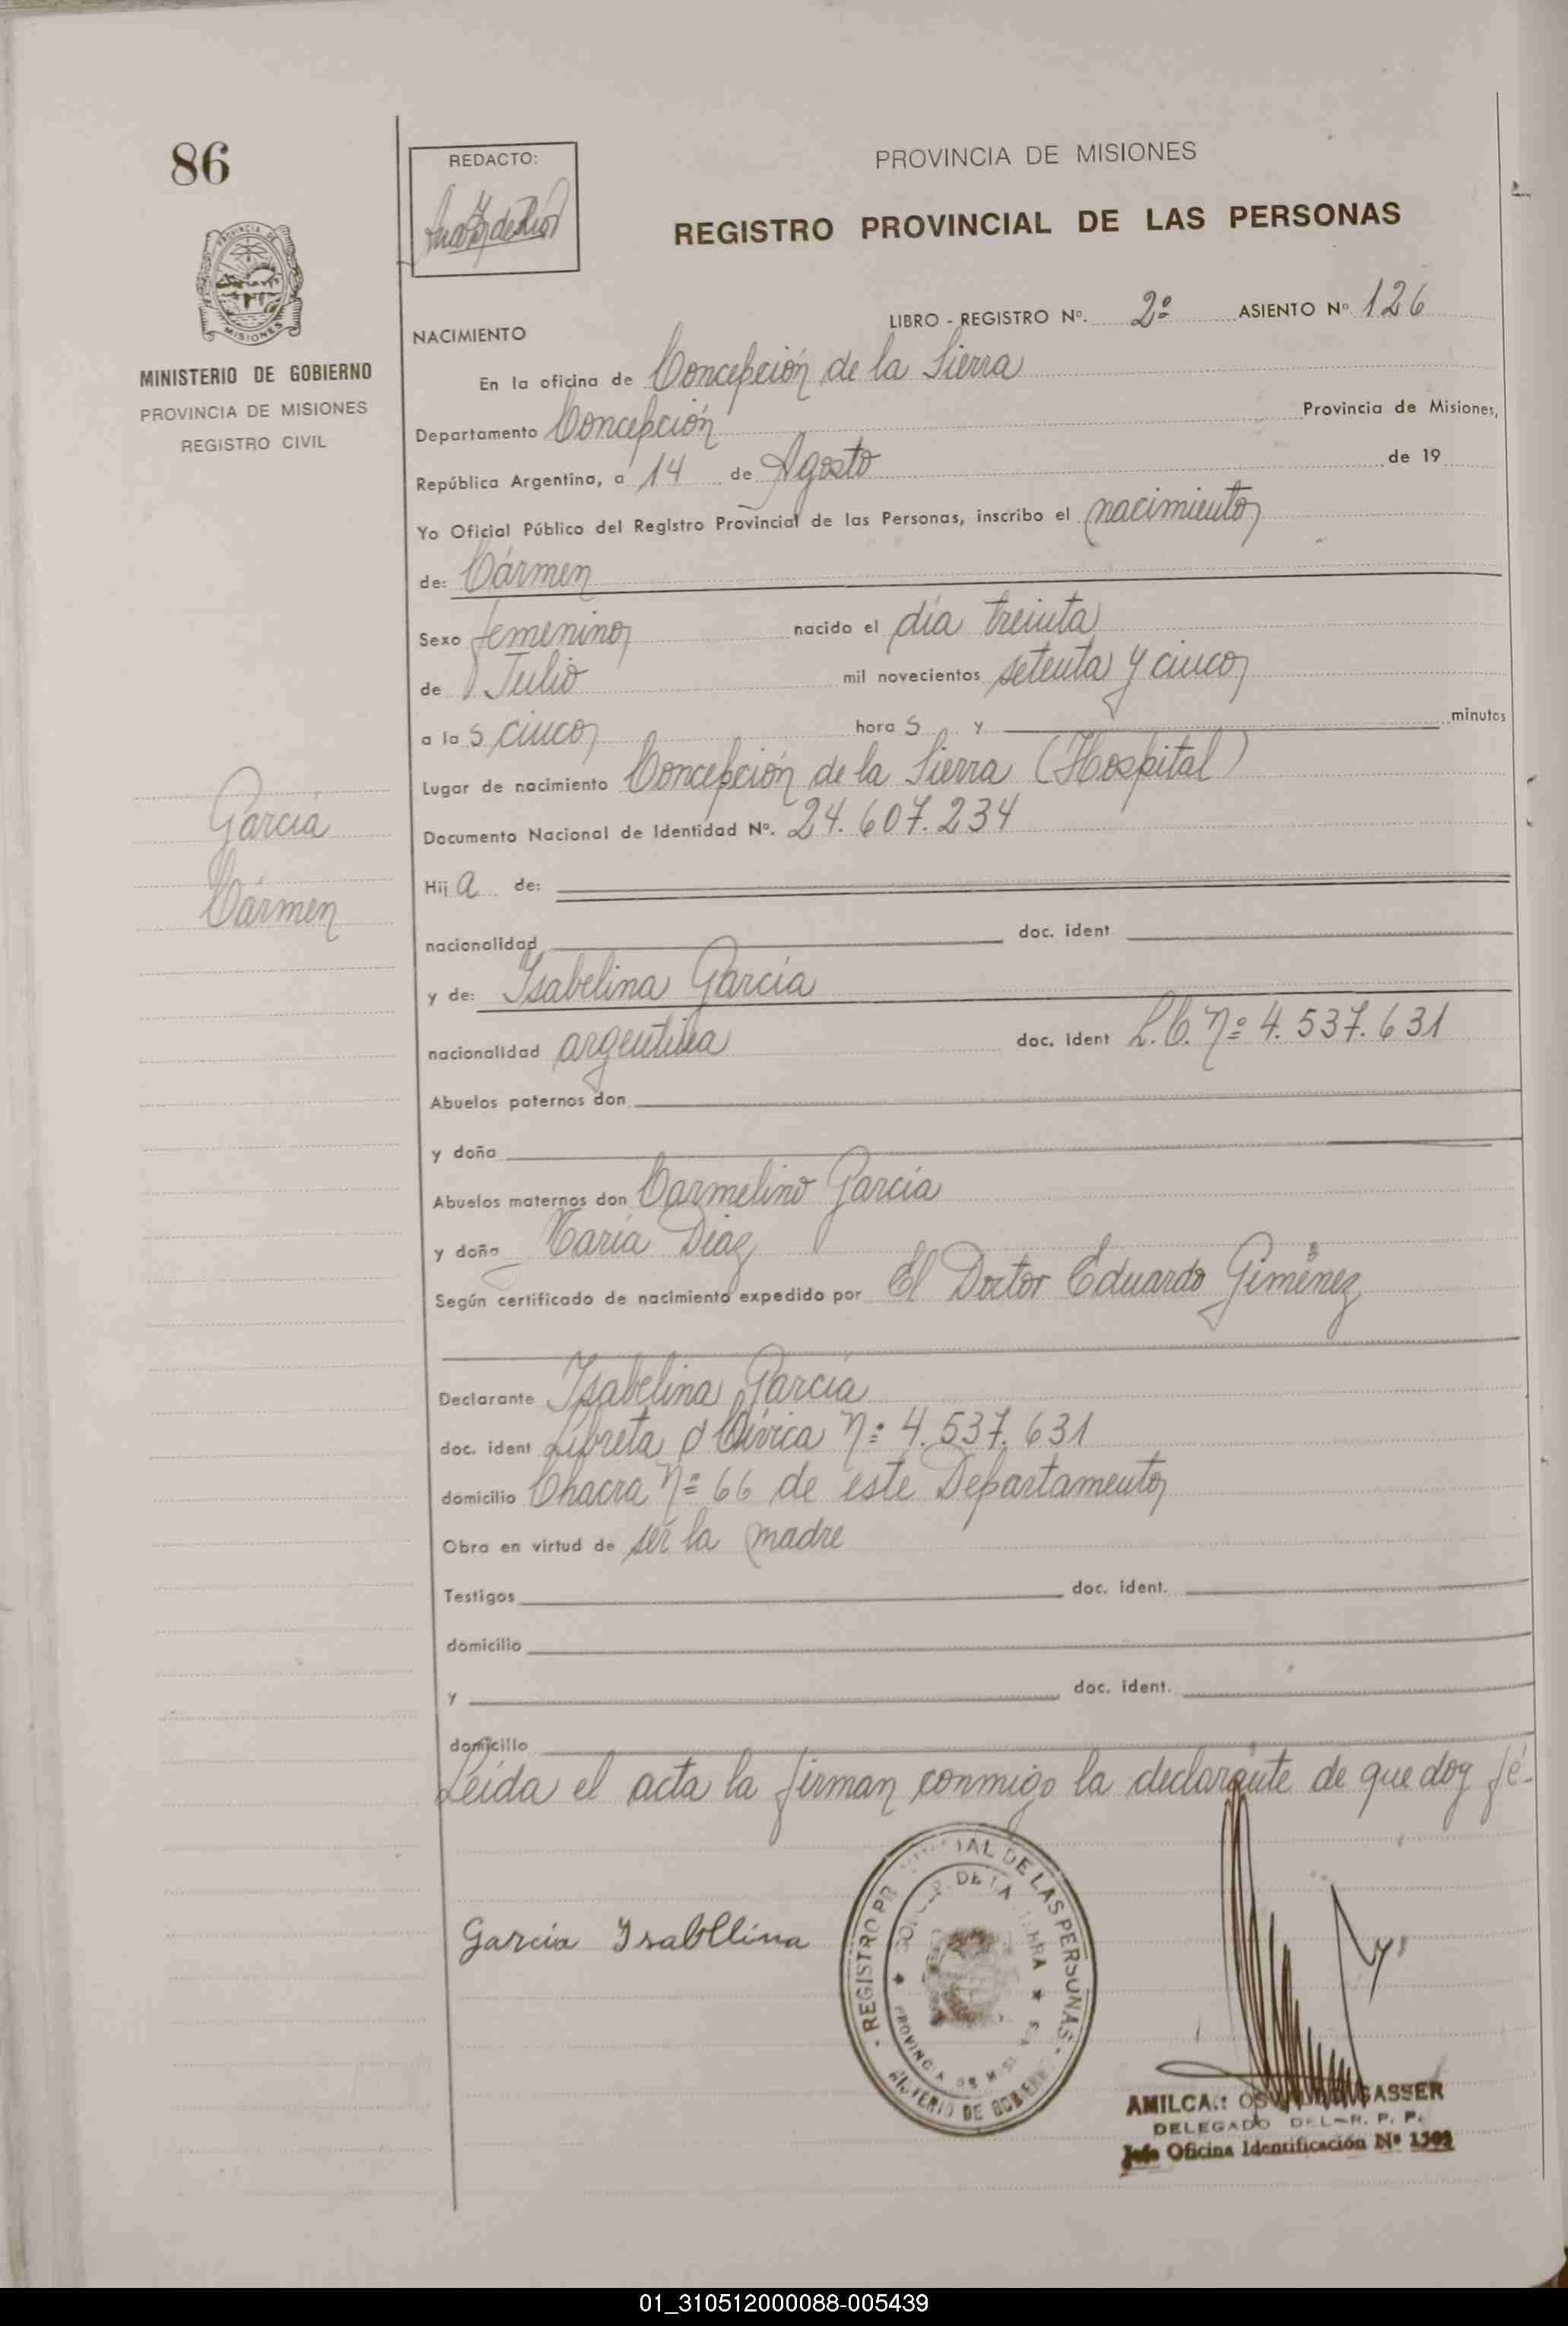 86
REDACTO:
PROVINCIA DE MISIONES
REGISTRO PROVINCIAL DE LAS PERSONAS
PROVINCIA DE
MISIONES
MINISTERIO DE GOBIERNO
PROVINCIA DE MISIONES
REGISTRO CIVIL
LIBRO - REGISTRO Nº. 2º ASIENTO Nº 126
NACIMIENTO
En la oficina de Concepción de la Sierra
Departamento Concepción Provincia de Misiones,
República Argentina, a 14 de Agosto de 19
Yo Oficial Público del Registro Provincial de las Personas, inscribo el nacimiento
de: Cármen
Sexo femenino nacido el día treinta
de Julio mil novecientos setenta y cinco
a la s cinco hora s y minutos
Lugar de nacimiento Concepción de la Sierra (Hospital)
Documento Nacional de Identidad Nº. 24.607.234
Hij a de:
nacionalidad doc. ident
y de: Isabelina García
nacionalidad argentina doc. ident L.C. nº 4.537.631
Abuelos paternos don
y doña
Abuelos maternos don Carmelino García
y doña María Diaz
Según certificado de nacimiento expedido por El Doctor Eduardo Giménez
Declarante Isabelina García
doc. ident Libreta Cívica nº 4.537.631
domicilio Chacra nº 66 de este Departamento
Obra en virtud de ser la madre
Testigos doc. ident.
domicilio
y doc. ident.
domicilio
Leída el acta la firman conmigo la declarante de que doy fé-
García
Cármen
García Isabllina
REGISTRO PR IAL DE LAS PERSONAS
DE LA
PROVINCIA DE
DE
AMILCA
GASSER
DELEGADO DEL R. P. P.
Jefe Oficina Identificación Nº 1502
01_310512000088-005439